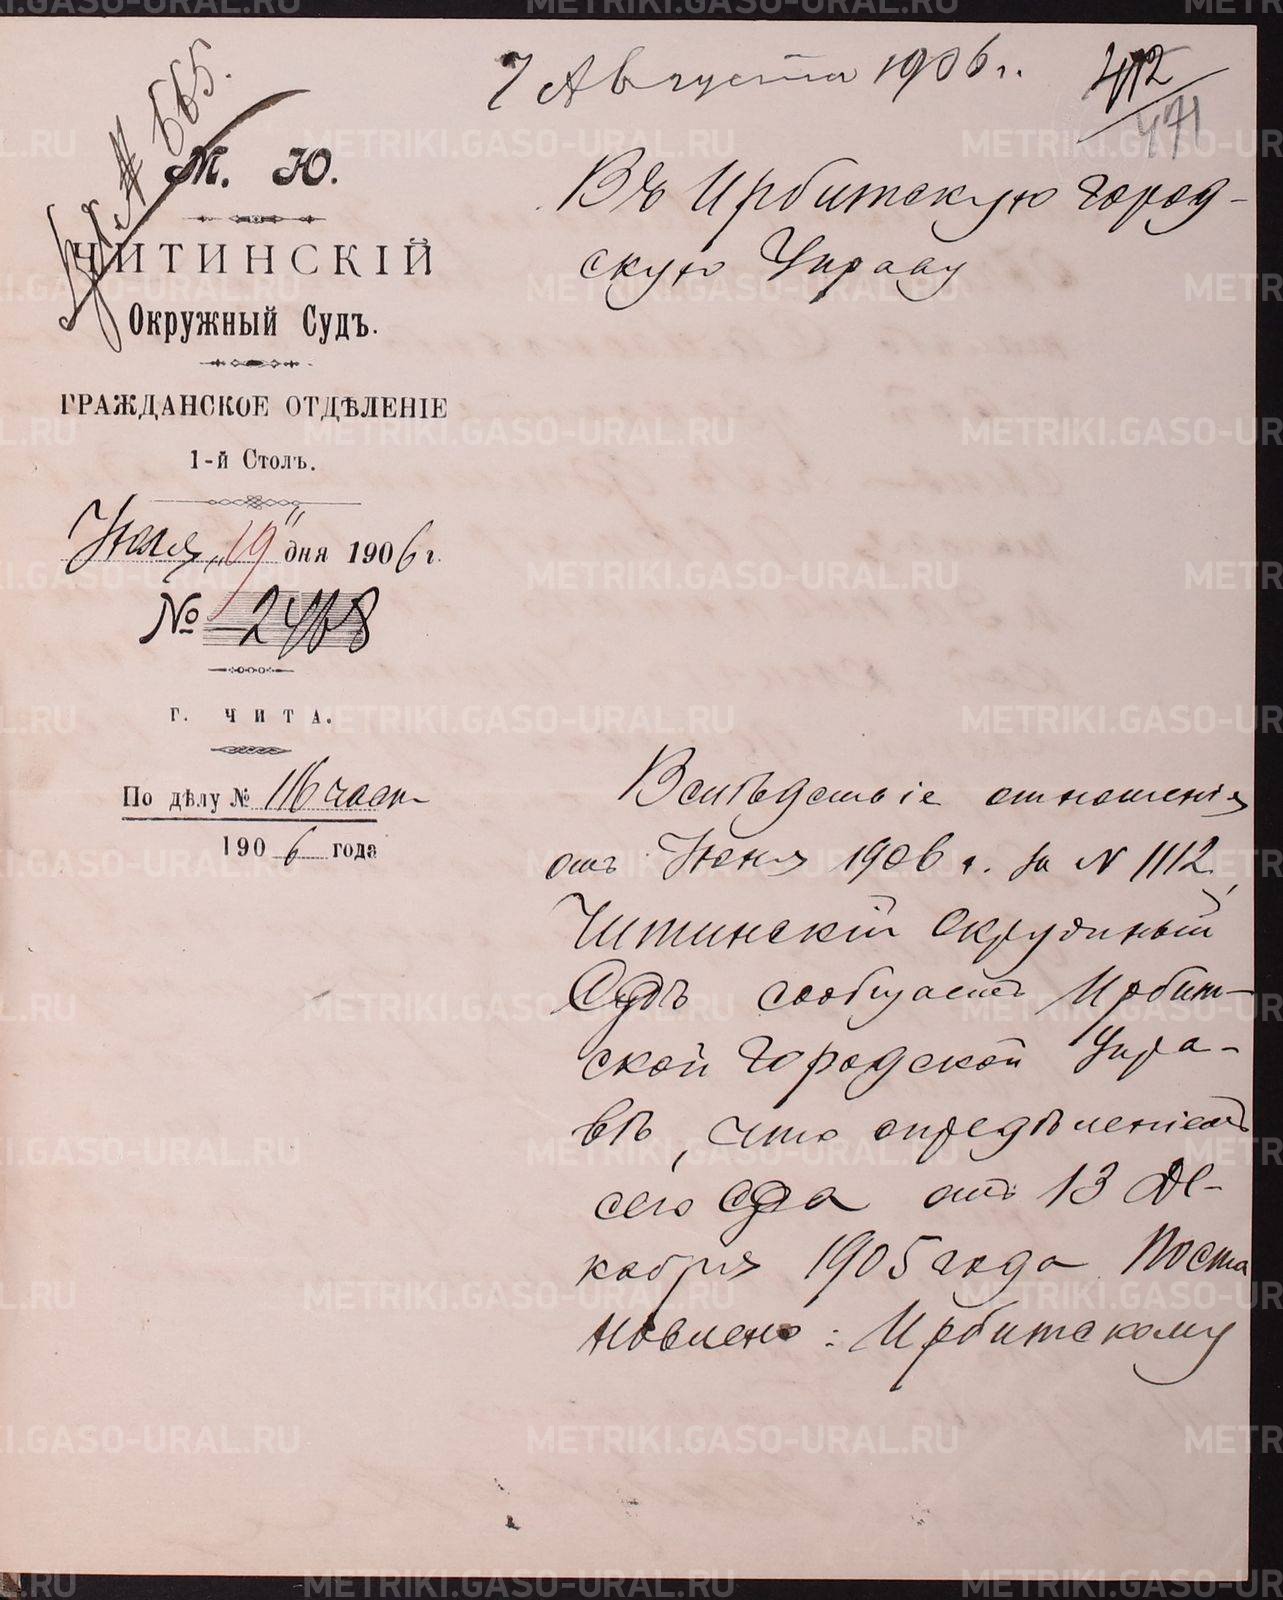 7 Августа 1906 г.
412
471
№ 665.
М. Ю.
ЧИТИНСКІЙ
Окружный Судъ.
ГРАЖДАНСКОЕ ОТДѢЛЕНІЕ
1-й Столъ.
Іюля „19" дня 1906 г.
№ 2468
г. ЧИТА.
По дѣлу № 116 част.
1906 года
Въ Ирбитскую город-
скую Управу
Вслѣдствіе отношенія
отъ Іюня 1906 г. за N 1112,
Читинскій Окружный
Судъ сообщаетъ Ирбит-
ской Городской Упра-
вѣ, что опредѣленіемъ
сего Суда отъ 13 Де-
кабря 1905 года поста
новлено: Ирбитскому
METRIKI.GASO-URAL.RU